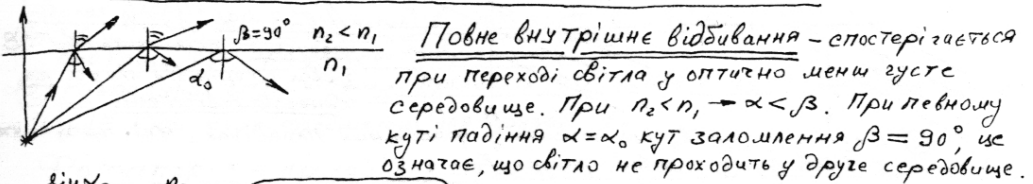 β=90° n₂ < n₁
n₁
α₀
Повне внутрішнє відбивання – спостерігається
при переході світла у оптично менш густе
середовище. При n₂<n₁ → α<β. При певному
куті падіння α=α₀ кут заломлення β=90°, це
означає, що світло не проходить у друге середовище.